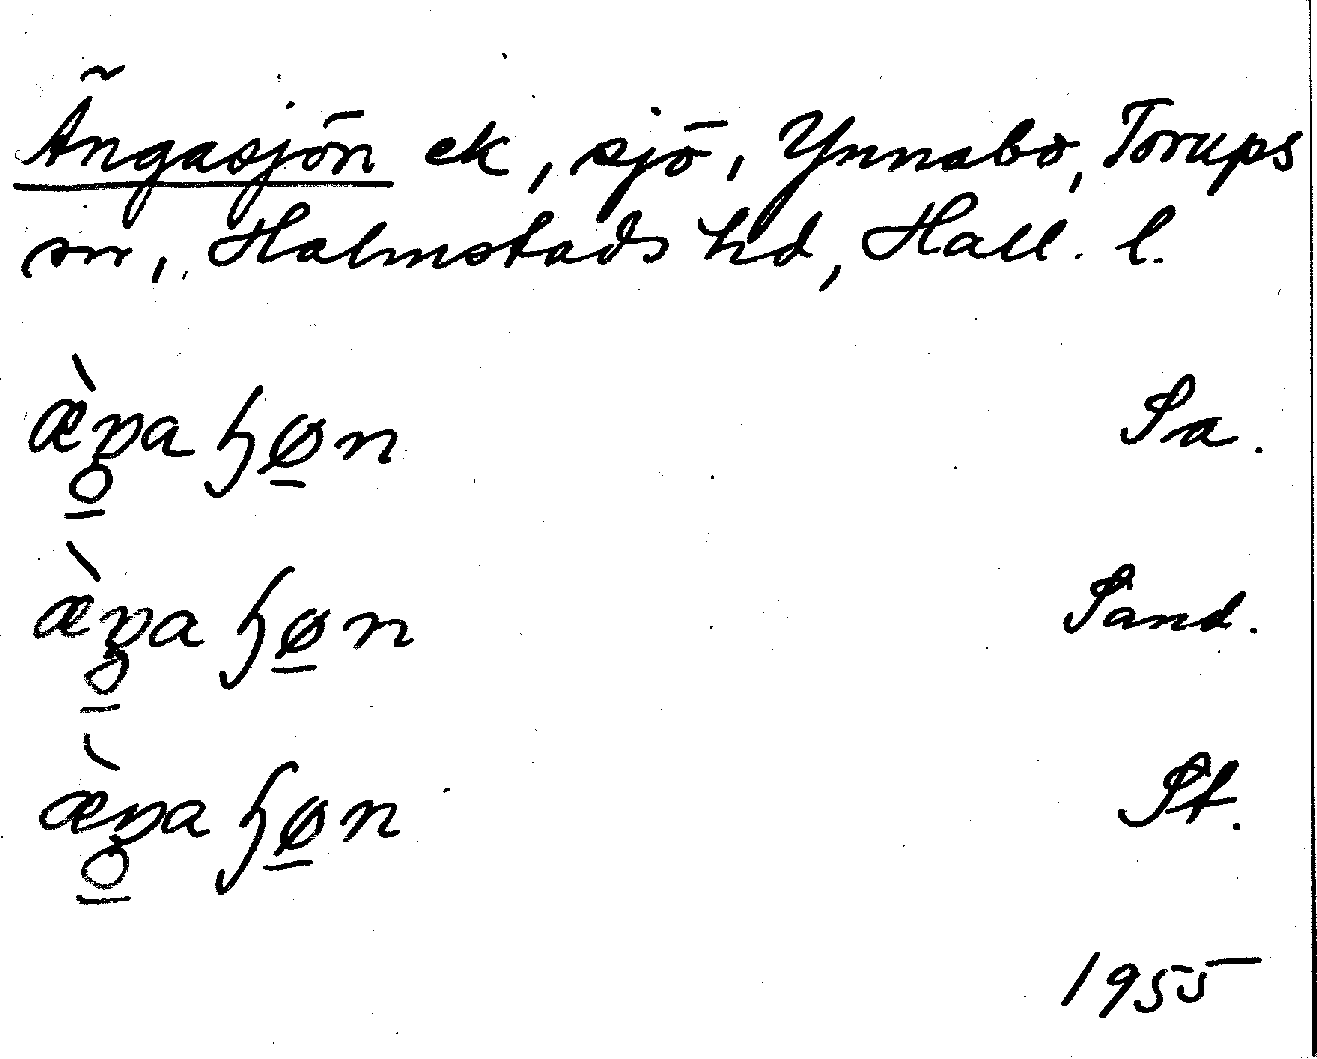 Ängasjön ek, sjö, Ynnabo, Torups
sn, Halmstads hd, Hall. l.
æ̀ŋa ɧø̠n Sa.
æ̀ŋa ɧø̠n Sand.
æ̀ŋa ɧø̠n St.
1955